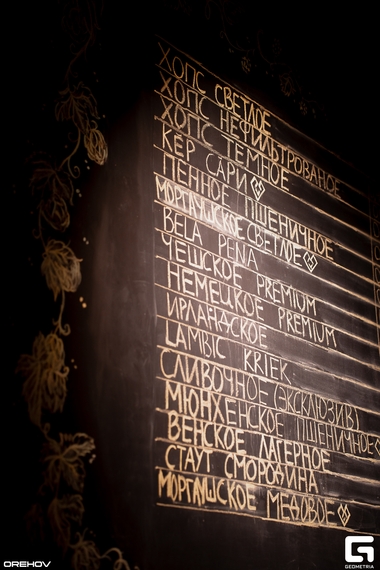 ХОПС СВЕТЛОЕ
ХОПС НЕФИЛЬТРОВАНОЕ
ХОПС ТЕМНОЕ
КЕР САРИ
ПЕННОЕ ПШЕНИЧНОЕ
МОРГАУШСКОЕ СВЕТЛОЕ
BELA PENA
ЧЕШСКОЕ PREMIUM
НЕМЕЦКОЕ PREMIUM
ИРЛАНДСКОЕ
LAMBIC KRIEK
СЛИВОЧНОЕ (ЭКСКЛЮЗИВ)
МЮНХЕНСКОЕ ПШЕНИЧНОЕ
ВЕНСКОЕ ЛАГЕРНОЕ
СТАУТ СМОРОДИНА
МОРГАУШСКОЕ МЕДОВОЕ
OREHOV
GEOMETRIA